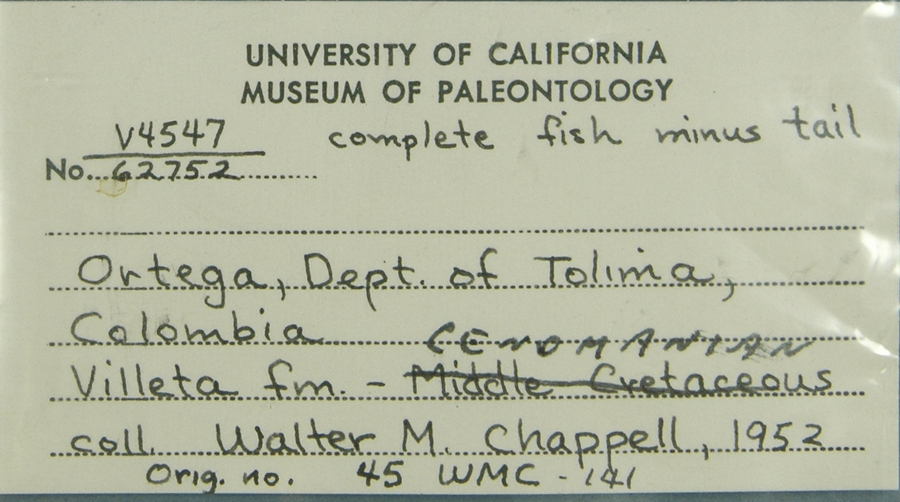 UNIVERSITY OF CALIFORNIA
MUSEUM OF PALEONTOLOGY
V4547 complete fish minus tail
No. 62752
Ortega, Dept. of Tolima,
Colombia
CENOMANIAN
Villeta fm. - Middle Cretaceous
coll. Walter M. Chappell, 1952
Orig. no. 45 WMC - 141